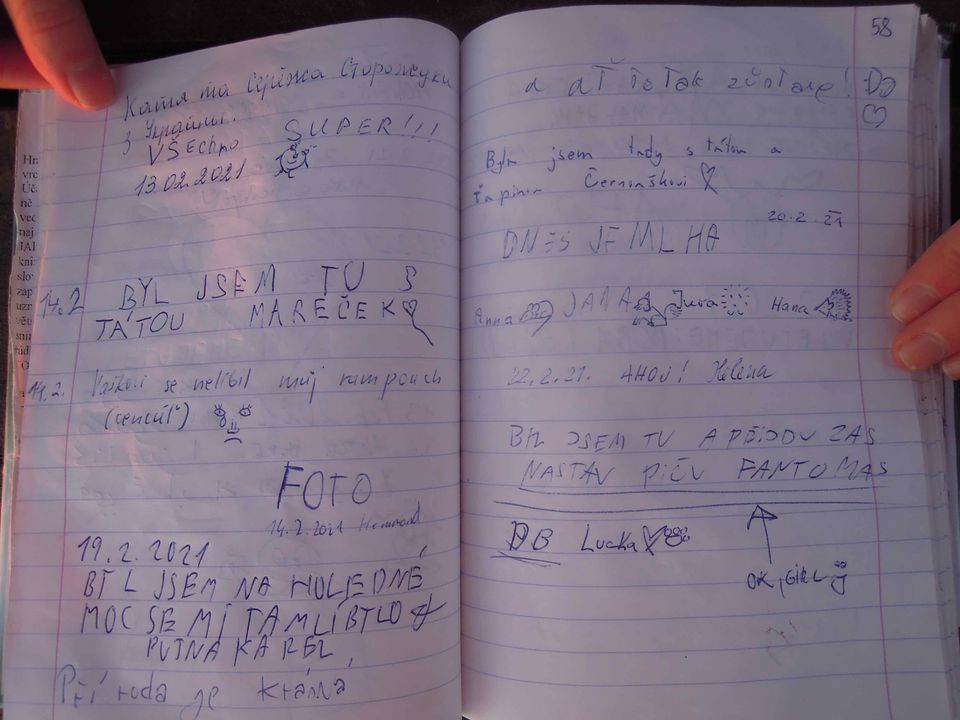 Катя та Сергійка Сторожуки
з України.
VŠECHNO SUPER!!!
13.02.2021
14.2. BYL JSEM TU S
TÁTOU MAREČEK
14.2. Vaškovi se nelíbil můj rampouch
(cencúl")
FOTO
14.2.2021
19.2.2021
BYL JSEM NA HOLEDNÉ
MOC SE MI TAM LÍBILO
PUTNA KAREL
Příroda je krásná
58
a ať to tak zůstane!
Byla jsem tady s tátou a
Černouškovi
20.2.21
DNES JE MLHA
Anna JANA Jura Hana
22.2.21. AHOJ! Helena
BYL JSEM TU A PŘIJDU ZAS
NASTAV PIČU FANTOMAS
DB Lucka
OK, GIRL